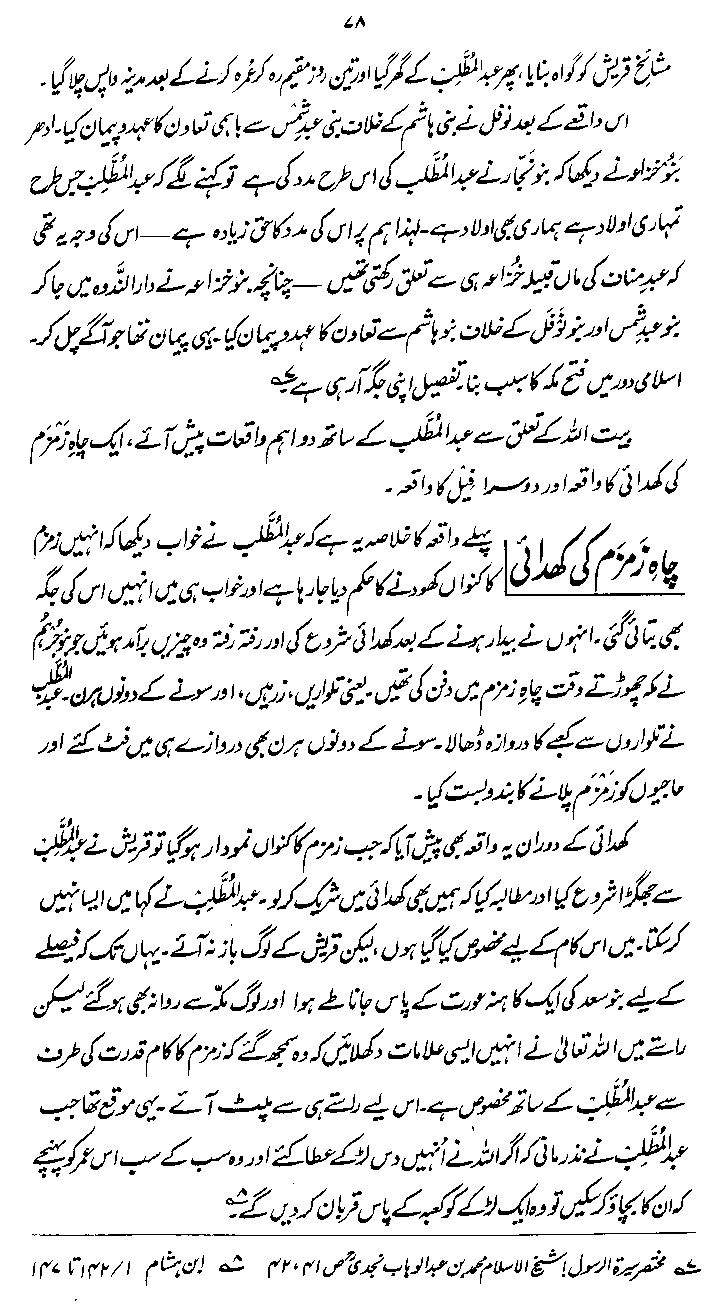 ۷۸
مشائخِ قریش کو گواہ بنایا، پھر عبدالمُطَّلِبْ کے گھر گیا اور تین روز مقیم رہ کر عُمرہ کرنے کے بعد مدینہ واپس چلا گیا۔
اس واقعے کے بعد نوفل نے بنی ہاشم کے خلاف بنی عبدِ شَمْس سے باہمی تعاون کا عہد و پیمان کیا۔ ادھر
بَنُو خُزَاعَہ نے دیکھا کہ بنو نَجّار نے عبدالمُطَّلب کی اس طرح مدد کی ہے تو کہنے لگے کہ عبدالمُطَّلِبْ جس طرح
تمہاری اولاد ہے ہماری بھی اولاد ہے۔ لہٰذا ہم پر اس کی مدد کا حق زیادہ ہے — اس کی وجہ یہ تھی
کہ عبدِ مناف کی ماں قبیلہ خُزاعہ ہی سے تعلق رکھتی تھیں — چنانچہ بنو خزاعہ نے دارالنَّدوہ میں جا کر
بنو عبدِ شَمس اور بنو نَوْفَل کے خلاف بنو ہاشم سے تعاون کا عہد و پیمان کیا۔ یہی پیمان تھا جو آگے چل کر
اسلامی دور میں فتح مکہ کا سبب بنا۔ تفصیل اپنی جگہ آ رہی ہے ۷؎
بیت اللہ کے تعلق سے عبدالمُطَّلب کے ساتھ دو اہم واقعات پیش آئے، ایک چاہِ زَمْزَم
کی کھدائی کا واقعہ اور دوسرا فِیل کا واقعہ۔
چاہِ زَمزَم کی کھدائی
پہلے واقعہ کا خلاصہ یہ ہے کہ عبدالمُطَّلِبْ نے خواب دیکھا کہ انہیں زمزم
کا کنواں کھودنے کا حکم دیا جا رہا ہے اور خواب ہی میں انہیں اس کی جگہ
بھی بتائی گئی۔ انہوں نے بیدار ہونے کے بعد کھدائی شروع کی اور رفتہ رفتہ وہ چیزیں برآمد ہوئیں جو بنو جُرْہُم
نے مکہ چھوڑتے وقت چاہِ زمزم میں دفن کی تھیں۔ یعنی تلواریں، زرہیں، اور سونے کے دونوں ہرن۔ عبدالمُطَّلِبْ
نے تلواروں سے کعبے کا دروازہ ڈھالا۔ سونے کے دونوں ہرن بھی دروازے ہی میں فٹ کئے اور
حاجیوں کو زَمْزَم پلانے کا بندوبست کیا۔
کھدائی کے دوران یہ واقعہ بھی پیش آیا کہ جب زمزم کا کنواں نمودار ہو گیا تو قریش نے عبدالمُطَّلِبْ
سے جھگڑا شروع کیا اور مطالبہ کیا کہ ہمیں بھی کھدائی میں شریک کر لو۔ عبدالمُطَّلِبْ نے کہا میں ایسا نہیں
کر سکتا۔ میں اس کام کے لیے مخصوص کیا گیا ہوں، لیکن قریش کے لوگ باز نہ آئے۔ یہاں تک کہ فیصلے
کے لیے بنو سعد کی ایک کاہنہ عورت کے پاس جانا طے ہوا اور لوگ مکّہ سے روانہ بھی ہو گئے لیکن
راستے میں اللہ تعالیٰ نے انہیں ایسی علامات دکھلائیں کہ وہ سمجھ گئے کہ زمزم کا کام قدرت کی طرف
سے عبدالمُطَّلِبْ کے ساتھ مخصوص ہے۔ اس لیے راستے ہی سے پلٹ آئے۔ یہی موقع تھا جب
عبدالمُطَّلِبْ نے نذر مانی کہ اگر اللہ نے اُنہیں دس لڑکے عطا کئے اور وہ سب کے سب اس عمر کو پہنچے
کہ ان کا بچاؤ کر سکیں تو وہ ایک لڑکے کو کعبہ کے پاس قربان کر دیں گے ۸؎
۷؎ مختصر سیرۃ الرسول، شیخ الاسلام محمد بن عبدالوہاب نجدیؒ ص ۴۱، ۴۲ ۸؎ ابن ہشام ۱/ ۱۴۲ تا ۱۴۷